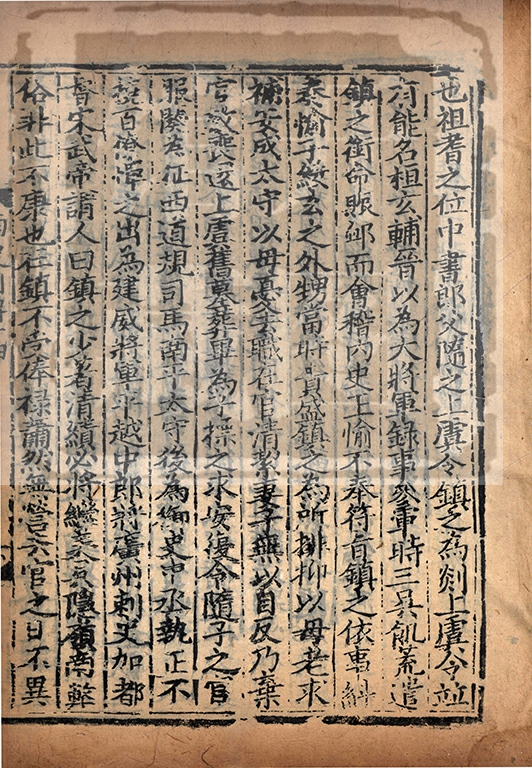 也祖耆之位中書郎父隨之上虞令鎮之為剡上虞令並
有能名桓玄輔晉以為大將軍録事參軍時三吳飢荒遣
鎮之銜命賑卹而會稽內史王愉不奉符旨鎮之依事糾
奏愉子綏玄之外甥當時貴盛鎮之為所排抑以母老求
補安成太守以母憂去職在官清絜妻子無以自反乃棄
官致喪還上虞舊墓葬畢為子標之求安復令隨子之官
服闋為征西道規司馬南平太守後為御史中丞執正不
撓百僚憚之出為建威將軍平越中郎將廣州刺史加都
督宋武帝謂人曰鎮之少著清績必將繼美吳隱嶺南弊
俗非此不康也在鎮不受俸禄蕭然無營去官之日不異